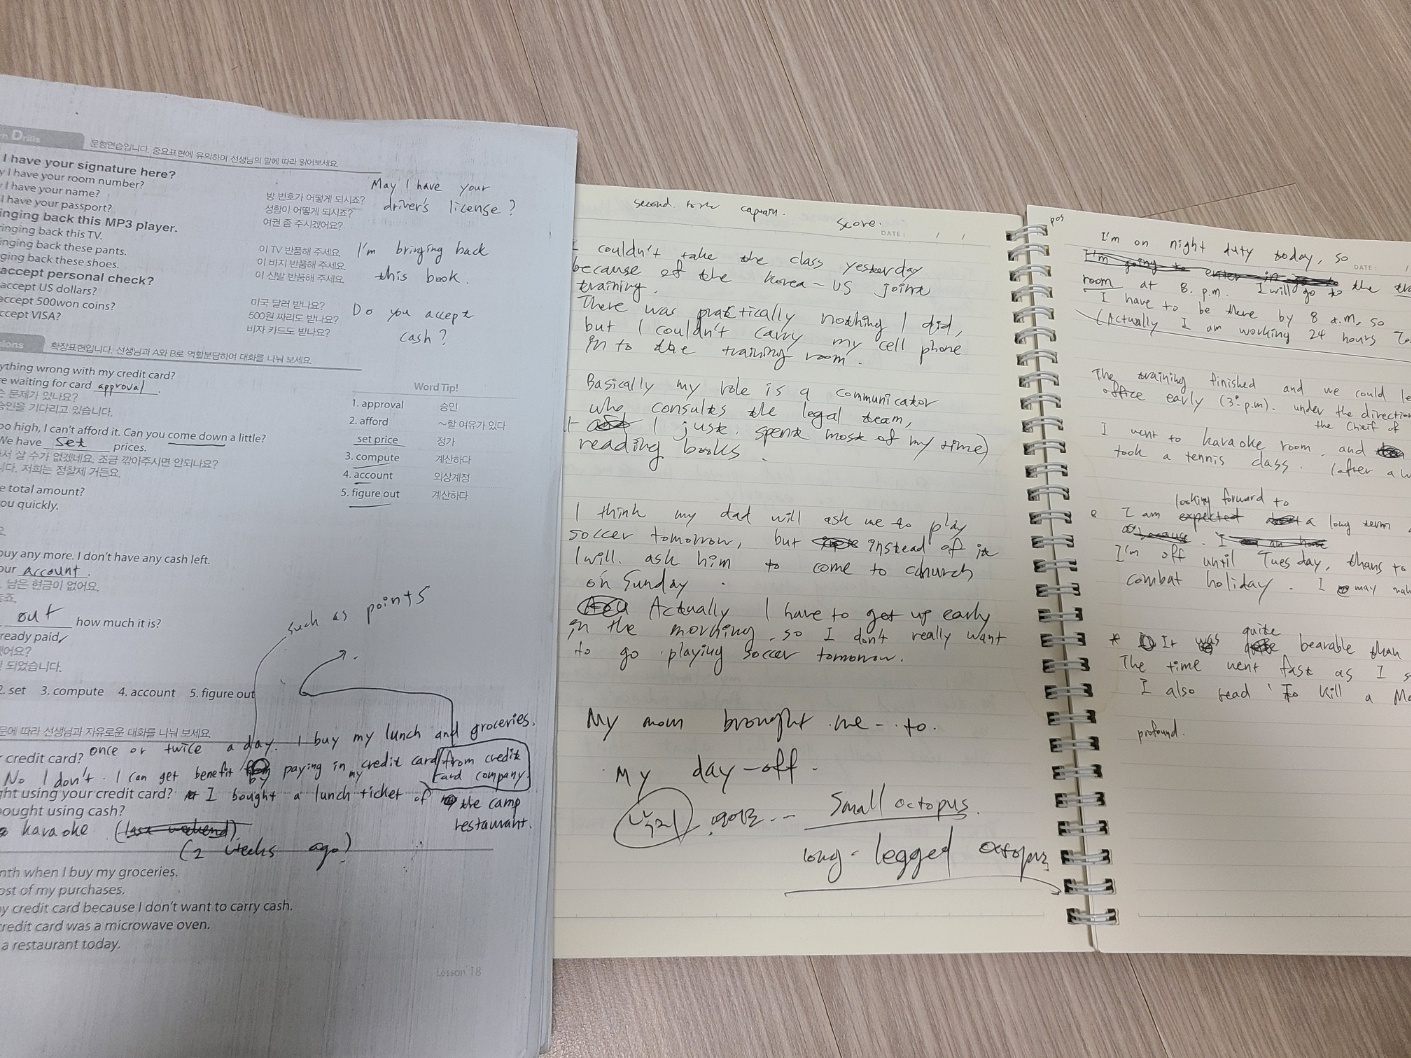 Drills 문형연습입니다. 중요표현에 유의하며 선생님의 말에 따라 읽어보세요.
I have your signature here?
I have your room number?
I have your name?
I have your passport?
inging back this MP3 player.
inging back this TV.
inging back these pants.
ging back these shoes.
accept personal check?
accept US dollars?
accept 500won coins?
ccept VISA?
방 번호가 어떻게 되시죠?
성함이 어떻게 되시죠?
여권 좀 주시겠어요?
이 TV 반품해 주세요.
이 바지 반품해 주세요.
이 신발 반품해 주세요.
미국 달러 받나요?
500원 짜리도 받나요?
비자 카드도 받나요?
May I have your
driver's license?
I'm bringing back
this book.
Do you accept
cash?
sions 확장표현입니다. 선생님과 A와 B로 역할분담하여 대화를 나눠 보세요.
ything wrong with my credit card?
e waiting for card approval.
문제가 있나요?
승인을 기다리고 있습니다.
oo high, I can't afford it. Can you come down a little?
We have set prices.
서 살 수가 없겠네요. 조금 깎아주시면 안되나요?
니다. 저희는 정찰제 거든요.
e total amount?
ou quickly.
buy any more. I don't have any cash left.
our account.
남은 현금이 없어요.
out how much it is?
ready paid
되었습니다.
2. set 3. compute 4. account 5. figure out
Word Tip!
1. approval 승인
2. afford ~할 여유가 있다
set price 정가
3. compute 계산하다
4. account 외상계정
5. figure out 계산하다
such as points
문에 따라 선생님과 자유로운 대화를 나눠 보세요.
once or twice a day. I buy my lunch and groceries.
credit card?
No I don't. I can get benefit by paying in my credit card from credit
card company
ght using your credit card? I bought a lunch ticket of the camp
restaurant.
bought using cash?
karaoke (last weekend)
(2 weeks ago)
nth when I buy my groceries.
ost of my purchases.
y credit card because I don't want to carry cash.
credit card was a microwave oven.
a restaurant today.
Lesson 18
second captain.
score.
DATE : / /
I couldn't take the class yesterday
because of the Korea-US joint
training.
There was practically nothing I did,
but I couldn't carry my cell phone
in to the training room.
Basically my role is a communicator
who consults the legal team,
I just spent most of my time)
reading books.
I think my dad will ask me to play
soccer tomorrow, but instead of it
I will ask him to come to church
on Sunday.
Actually I have to get up early
in the morning, so I don't really want
to go playing soccer tomorrow.
My mom brought me to.
My day-off.
낙지
Small octopus.
long-legged octopus
I'm on night duty today, so
DATE :
I'm going to enter in I will go to the
room at 8. p.m.
I have to be there by 8 a.m, so
(Actually I am working 24 hours
The training finished and we could
office early (3:p.m). under the direction
the Chief of
I went to karaoke room, and
took a tennis class. (after a
looking forward to
I am expected a long term
because I
I'm off until Tuesday, thanks to
combat holiday. I may
* It was quite bearable than
The time went fast as I
I also read 'To Kill a Mo
profound.